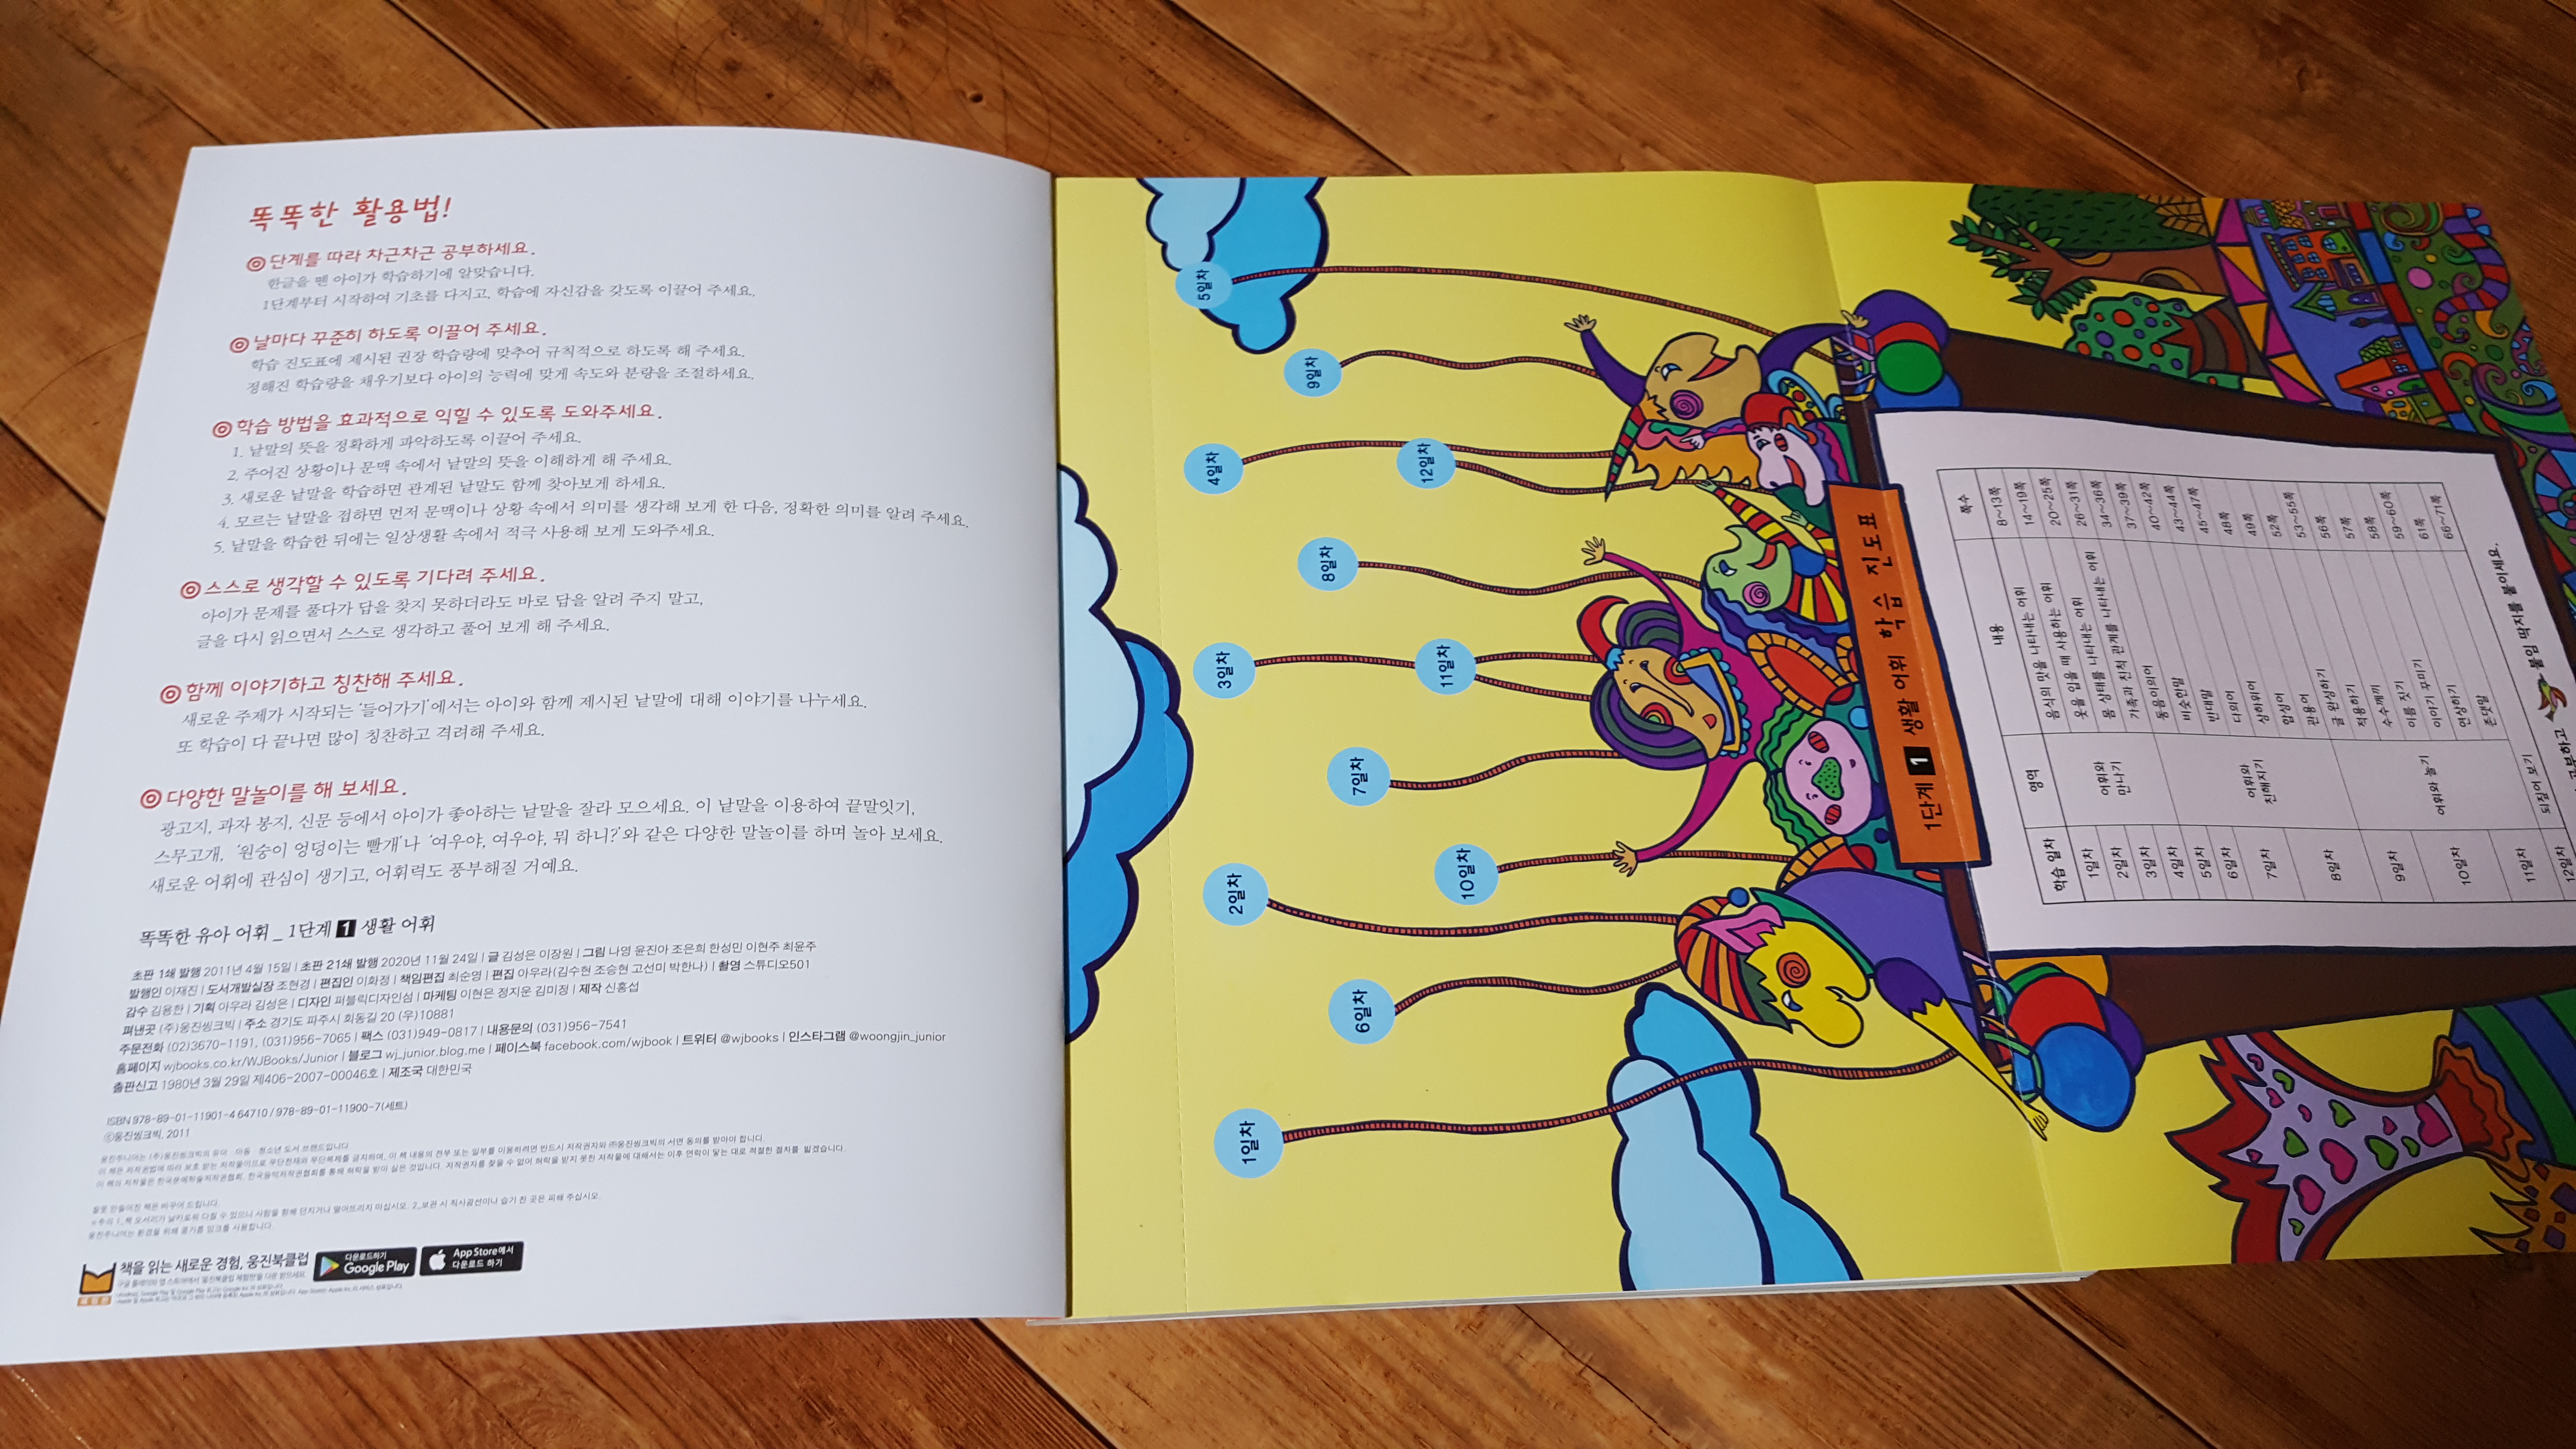 똑똑한 활용법!
◎ 단계를 따라 차근차근 공부하세요.
한글을 뗀 아이가 학습하기에 알맞습니다.
1단계부터 시작하여 기초를 다지고, 학습에 자신감을 갖도록 이끌어 주세요.
◎ 날마다 꾸준히 하도록 이끌어 주세요.
학습 진도표에 제시된 권장 학습량에 맞추어 규칙적으로 하도록 해 주세요.
정해진 학습량을 채우기보다 아이의 능력에 맞게 속도와 분량을 조절하세요.
◎ 학습 방법을 효과적으로 익힐 수 있도록 도와주세요.
1. 낱말의 뜻을 정확하게 파악하도록 이끌어 주세요.
2. 주어진 상황이나 문맥 속에서 낱말의 뜻을 이해하게 해 주세요.
3. 새로운 낱말을 학습하면 관계된 낱말도 함께 찾아보게 하세요.
4. 모르는 낱말을 접하면 먼저 문맥이나 상황 속에서 의미를 생각해 보게 한 다음, 정확한 의미를 알려 주세요.
5. 낱말을 학습한 뒤에는 일상생활 속에서 적극 사용해 보게 도와주세요.
◎ 스스로 생각할 수 있도록 기다려 주세요.
아이가 문제를 풀다가 답을 찾지 못하더라도 바로 답을 알려 주지 말고,
글을 다시 읽으면서 스스로 생각하고 풀어 보게 해 주세요.
◎ 함께 이야기하고 칭찬해 주세요.
새로운 주제가 시작되는 '들어가기'에서는 아이와 함께 제시된 낱말에 대해 이야기를 나누세요.
또 학습이 다 끝나면 많이 칭찬하고 격려해 주세요.
◎ 다양한 말놀이를 해 보세요.
광고지, 과자 봉지, 신문 등에서 아이가 좋아하는 낱말을 잘라 모으세요. 이 낱말을 이용하여 끝말잇기,
스무고개, '원숭이 엉덩이는 빨개'나 '여우야, 여우야, 뭐 하니?'와 같은 다양한 말놀이를 하며 놀아 보세요.
새로운 어휘에 관심이 생기고, 어휘력도 풍부해질 거예요.
똑똑한 유아 어휘_1단계 1 생활 어휘
초판 1쇄 발행 2011년 4월 15일 | 초판 21쇄 발행 2020년 11월 24일 | 글 김성은 이장원 | 그림 나영 윤진아 조은희 한성민 이현주 최윤주
발행인 이재진 | 도서개발실장 조현경 | 편집인 이화정 | 책임편집 최순영 | 편집 아우라(김수현 조승현 고선미 박한나) | 촬영 스튜디오501
감수 김용한 | 기획 아우라 김성은 | 디자인 퍼블릭디자인섬 | 마케팅 이현은 정지운 김미정 | 제작 신홍섭
펴낸곳 (주)웅진씽크빅 | 주소 경기도 파주시 회동길 20 (우)10881
주문전화 (02)3670-1191, (031)956-7065 | 팩스 (031)949-0817 | 내용문의 (031)956-7541
홈페이지 wjbooks.co.kr/WJBooks/Junior | 블로그 wj_junior.blog.me | 페이스북 facebook.com/wjbook | 트위터 @wjbooks | 인스타그램 @woongjin_junior
출판신고 1980년 3월 29일 제406-2007-00046호 | 제조국 대한민국
ISBN 978-89-01-11901-4 64710 / 978-89-01-11900-7(세트)
ⓒ웅진씽크빅, 2011
웅진주니어는 (주)웅진씽크빅의 유아·아동·청소년 도서 브랜드입니다.
이 책은 저작권법에 따라 보호 받는 저작물이므로 무단전재와 무단복제를 금지하며, 이 책 내용의 전부 또는 일부를 이용하려면 반드시 저작권자와 ㈜웅진씽크빅의 서면 동의를 받아야 합니다.
이 책의 저작물은 한국문예학술저작권협회, 한국음악저작권협회를 통해 허락을 받아 실은 것입니다. 저작권자를 찾을 수 없어 허락을 받지 못한 저작물에 대해서는 이후 연락이 닿는 대로 적절한 절차를 밟겠습니다.
잘못 만들어진 책은 바꾸어 드립니다.
※주의 1_책 모서리가 날카로워 다칠 수 있으니 사람을 향해 던지거나 떨어뜨리지 마십시오. 2_보관 시 직사광선이나 습기 찬 곳은 피해 주십시오.
웅진주니어는 환경을 위해 콩기름 잉크를 사용합니다.
책을 읽는 새로운 경험, 웅진북클럽
다운로드하기
Google Play
App Store에서
다운로드 하기
5일차
9일차
4일차
12일차
8일차
3일차
11일차
7일차
2일차
10일차
6일차
1일차
1단계 1 생활 어휘 학습 진도표
학습 일차 영역 내용 쪽수
1일차
2일차
3일차
4일차
5일차
6일차
7일차
8일차
9일차
10일차
11일차
12일차
어휘와
만나기
어휘와
친해지기
어휘와 놀기
되짚어 보기
음식의 맛을 나타내는 어휘
옷을 입을 때 사용하는 어휘
몸 상태를 나타내는 어휘
가족과 친척 관계를 나타내는 어휘
동음이의어
비슷한말
반대말
다의어
상하위어
합성어
관용어
글 완성하기
적용하기
수수께끼
이름 짓기
이야기 꾸미기
연상하기
존댓말
8~13쪽
14~19쪽
20~25쪽
26~31쪽
34~36쪽
37~39쪽
40~42쪽
43~44쪽
45~47쪽
48쪽
49쪽
52쪽
53~55쪽
56쪽
57쪽
58쪽
59~60쪽
61쪽
66~71쪽
공부하고 붙임 딱지를 붙이세요.